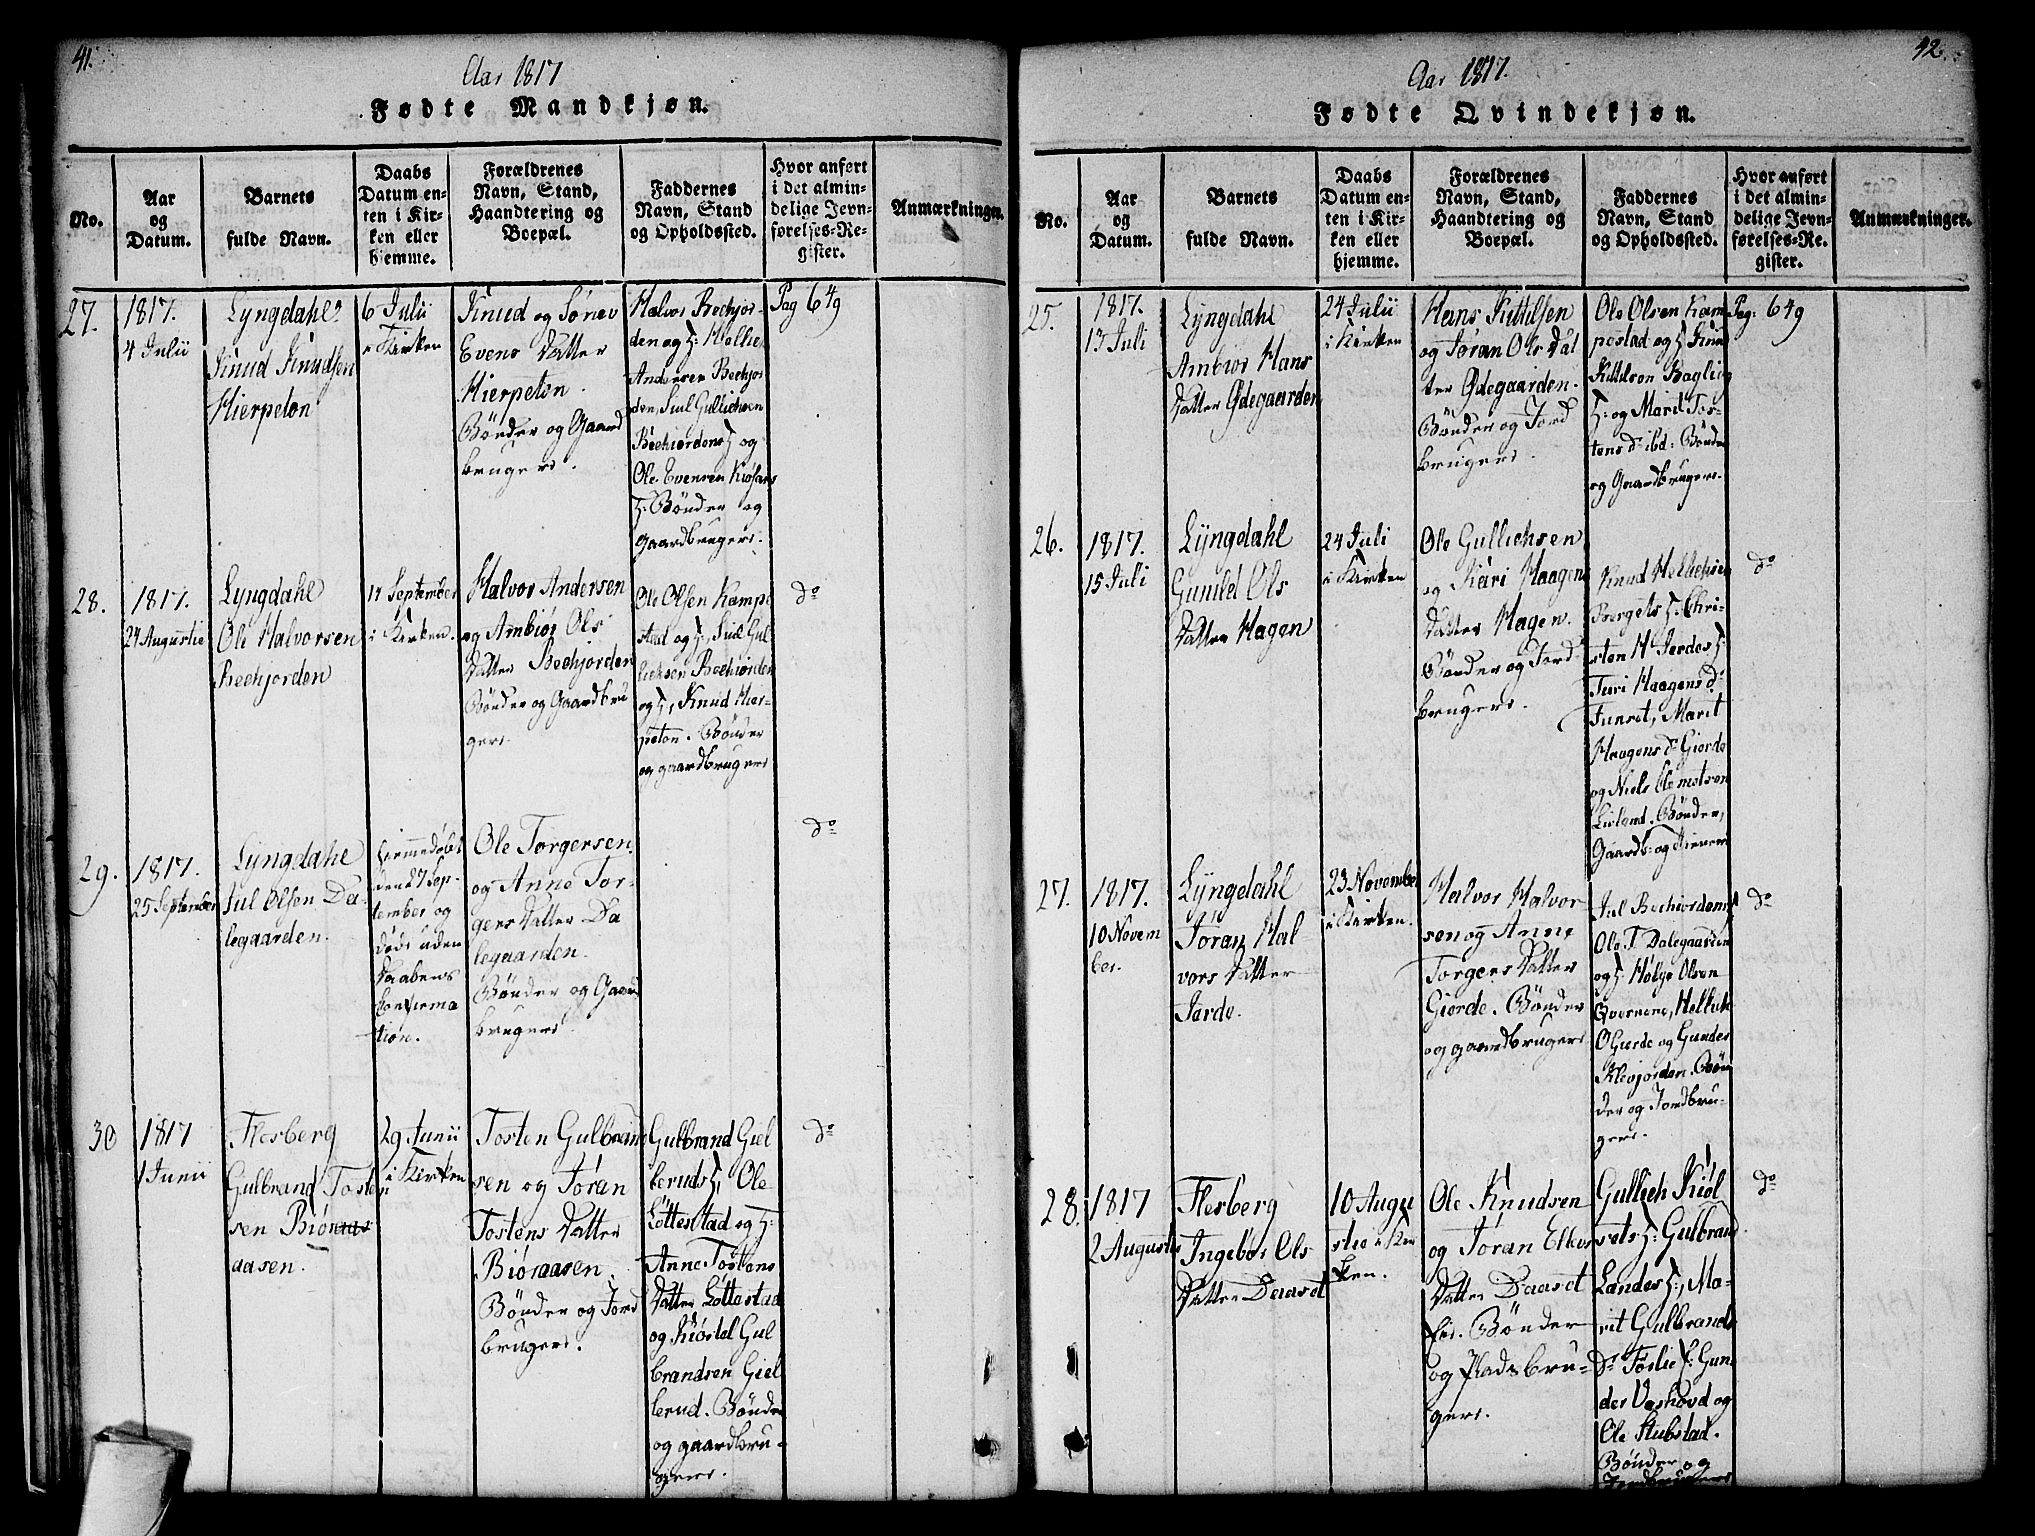 41.
Aar 1817
Fødte Mandkjøn.
No.
Aar
og
Datum.
Barnets
fulde Navn.
Daabs
Datum en-
ten i Kir-
ken eller
hjemme.
Forældrenes
Navn, Stand,
Haandtering og
Boepæl.
Faddernes
Navn, Stand
og Opholdssted.
Hvor anført
i det almin-
delige Jevn-
førelses-Re-
gister.
Anmærkninger.
27.
1817.
4 Julii
Lyngdahl
Knud Knudsen
Hierpeton
6 Julii
i Kirken
Knud og
Evens Datter
Hierpeton.
Bönder og Gaard
brugers.
Halvor Bechjor-
den og
Andersen Bechjor
den, Juel Gullichsen
Bechiordens og
Ole Evensen
Bönder og
Gaardbrugers.
Pag 649
28.
1817.
24 Augustie
Lyngdahl
Ole Halvorsen
Bechjorden
17 September
i Kirken.
Halvor Andersen
og Ambiør Ols
Datter Bechjorden
Bönder og Gaardbru
gers.
Ole Olsen Kampe
stad og Juel Gul
lichsen Bechiorden
og Knud Hier-
peton. Bönder
og gaardbrugers
do
29.
1817.
25 September
Lyngdahl
Jul Olsen Da-
legaarden.
hiemmedøbt
den 27 Sep-
tember og
döde uden
Daabens
Confirma
tion.
Ole Torgersen
og Anne Tor-
gers Datter Da
legaarden.
Bönder og Gaard
brugers.
do
30
1817
1 Junii
Flesberg
Gulbrand Tosten
sen
aasen.
29 Junii
i Kirken
Tosten Gulbrand
sen og Jöran
Tostens Datter
Biöraasen.
Bönder og Jord
brugers.
Gulbrand Giel
leruds, Ole
Löttestad og
Anne Tostens
Datter Løttestad
og Kiöstel Gul
brandsen Giel
lerud. Bönder
og gaardbru-
gers.
do
42.
Aar 1817.
Fødte Qvindekjøn.
No.
Aar
og
Datum.
Barnets
fulde Navn.
Daabs
Datum en-
ten i Kir-
ken eller
hjemme.
Forældrenes
Navn, Stand,
Haandtering og
Boepæl.
Faddernes
Navn, Stand
og Opholdssted.
Hvor anført
i det almin-
delige Jevn-
førelses-Re-
gister.
Anmærkninger.
25.
1817.
13 Juli
Lyngdahl
Ambiør Hans
Datter Ødegaarden
24 Julii
i Kirken
Hans Kittilsen
og Jøran Ols Dat
ter Ødegaarden.
Bönder og Jord
brugers.
Ole Olsen Kam
pestad og Knud
Kittilson
og Marit Tos-
tens d. ibd: Bönder
og Gaardbrugers.
Pag: 649
26.
1817.
15 Juli
Lyngdahl
Gunild Ols
Datter Hagen
24 Juli
i Kirken
Ole Gullichsen
og Kari Haagens
Datter Hagen.
Bönder og Jord
brugers.
Knud
Bergets, Chri-
sten
Turi Haagens d.
Funret, Marit
Haagens d. Giorde
og Niels Clemetsen
Livland. Bönder,
Gaards- og
do
27.
1817.
10 Novem
ber.
Lyngdahl
Jöran Hal-
vors Datter
Jorde.
23 November
i Kirken.
Halvor Halvor
sen og Anne
Torgers Datter
Giorde. Bönder
og gaardbrugers
Jul Bechiordens
Ole T. Dalegaarden
og Helge Olsen
Qvernene,
og Gunder
Klevjorden. Bön
der og Jordbru-
gers.
do
28.
1817
2 Augustie
Flesberg
Ingebör Ols
Datter Daaset
10 Augu
stie i Kir
ken.
Ole Knudsen
og Jöran
Datter Daaset
Eie. Bönder
og Pladsbru-
gers.
Gullich Kiöl
sets, Gulbrand
Landes, Ma-
rit Gulbrands
d. Foslie, Gun
der Vaskovd og
Ole Stubstad.
Bönder og
Jordbrugers
do